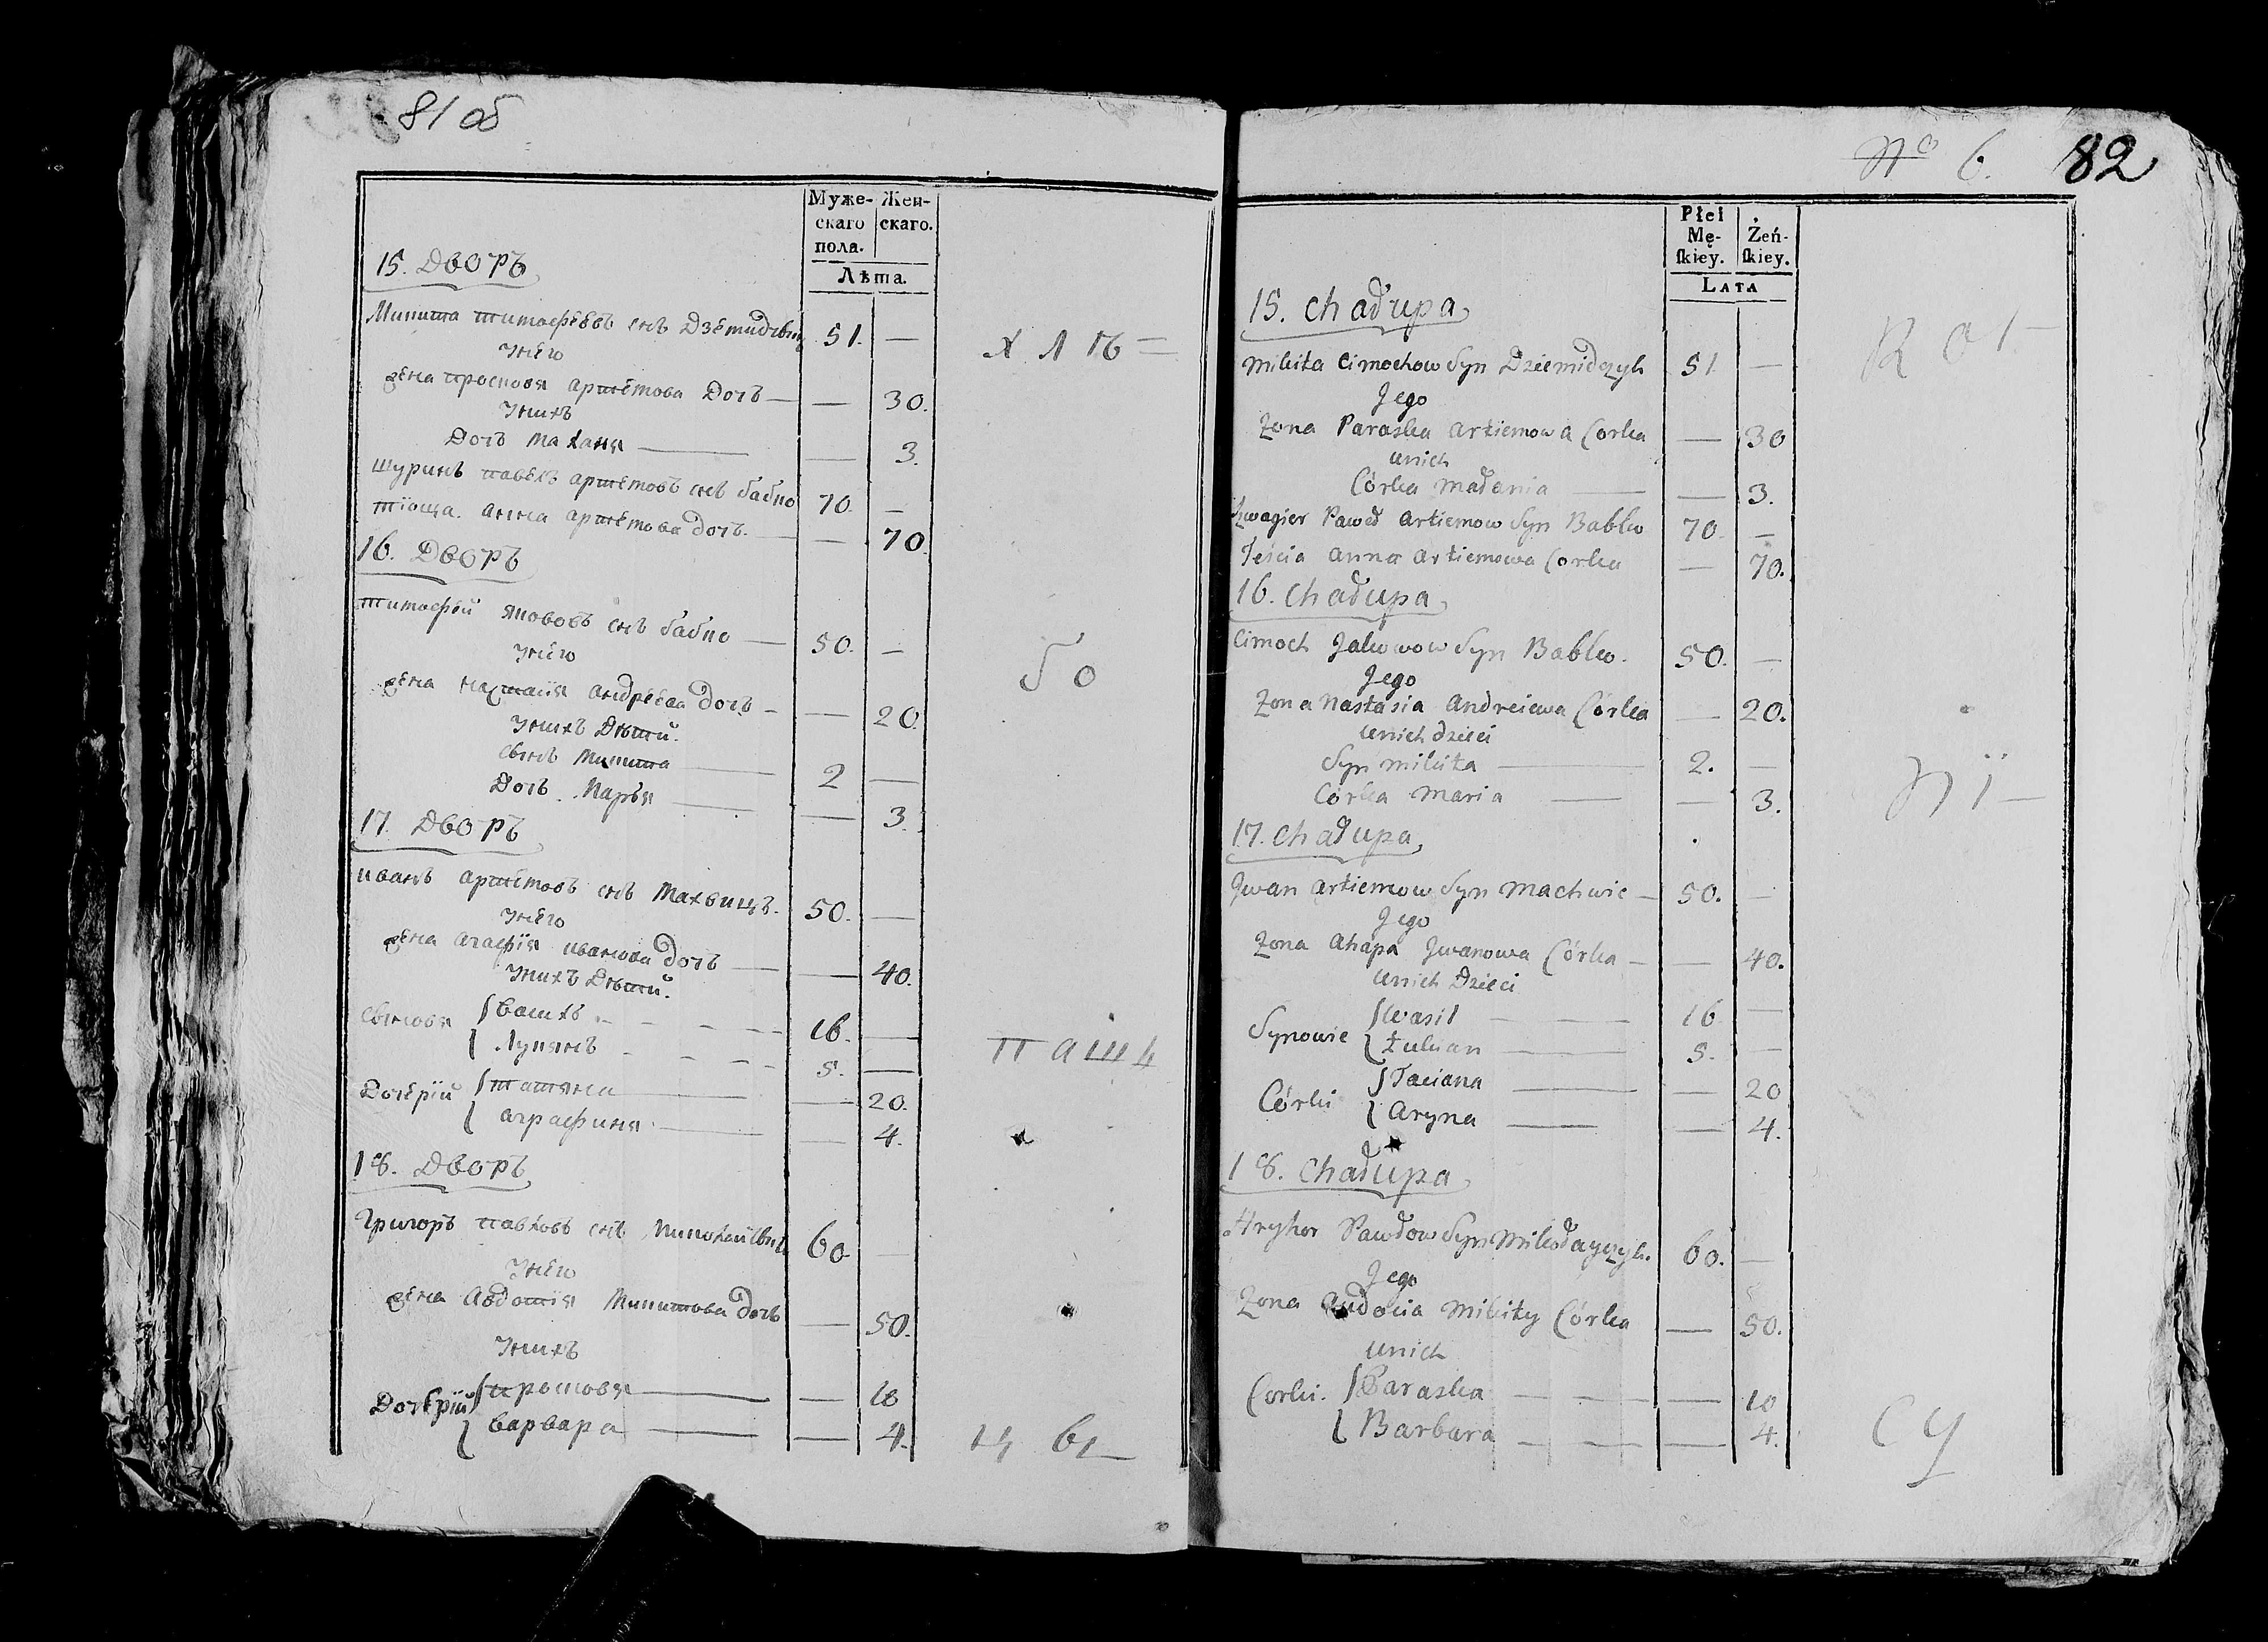 81 об
Муже- Жен-
скаго скаго.
пола.
Лѣта.
15. Дворъ
Микита тимофѣевъ снъ Дземидчыкъ 51. —
у него
жена просковя артемова Дочъ — — 30.
у нихъ
Дочъ Маланя — — 3.
шуринъ павелъ артемовъ снъ бабко 70. —
тіоща. анна артемова дочъ. — — 70.
16. Дворъ
тимофѣй якововъ снъ бабко — 50. —
у него
жена настасія андреева дочъ — — 20.
у нихъ Дѣтѣй.
сынъ Микита — 2 —
Дочъ Маръя — — 3.
17. Дворъ
иванъ артемовъ снъ Махвицъ. 50. —
у него
жена агафия иванова дочъ — — 40.
у нихъ Дѣтѣй.
сыновя { Василь - - - - 16. —
{ Лукянъ - - - 5. —
Дочерій { татяна — — 20.
{ аграфиня — — 4.
18. Дворъ
Григоръ павловъ снъ Миколайчыкъ 60. —
у него
жена Авдотія Микитова дочъ — 50.
у нихъ
Дочерій { просковя — — 10
{ варвара — — 4.
Х Л Ѣ =
Б О
П А Ш Ч
Ц Ы —
№ 6. 82
Płci
Mę- Żeń-
ſkiey. ſkiey.
LATA
15. Chałupa
Mikita Cimochow Syn Dziemidczyk 51. —
Jego
Zona Paraska Artiemowa Corka — 30
unich
Córka Małania — — 3.
Szwagier Paweł Artiemow Syn Babko 70. —
Teścia Anna Artiemowa Corka — 70.
16. Chałupa
Cimoch Jakowow Syn Babko. 50. —
Jego
Zona Nastasia Andreiewa Córka — 20.
unich dzieci
Syn Mikita — 2. —
Córka Maria — — 3.
17. Chałupa
Jwan Artiemow Syn Machwic — 50. —
Jego
Zona Ahapa Jwanowa Córka — — 40.
unich Dzieci
Synowie { Wasil — 16 —
{ Łukian — 5. —
Córki { Taciana — — 20
{ Aryna — — 4.
18. Chałupa
Hryhor Pawłow Syn Mikołayczyk. 60. —
Jego
Zona Audocia Mikity Córka — 50.
unich
Corki. { Paraska - - - — 10
{ Barbara - - - — 4.
R O L —
N I —
C Y